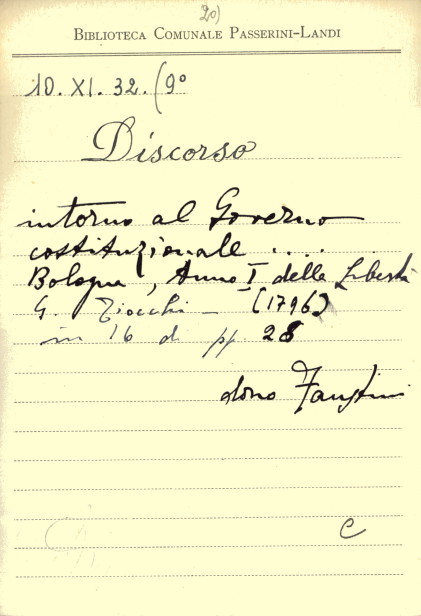 20)
BIBLIOTECA COMUNALE PASSERINI-LANDI
10. XI. 32. (9°
Discorso
intorno al Governo
costituzionale ....
Bologna, Anno I della Libertà
G. — (1796)
in 16 di pp. 28
dono Faustini
C